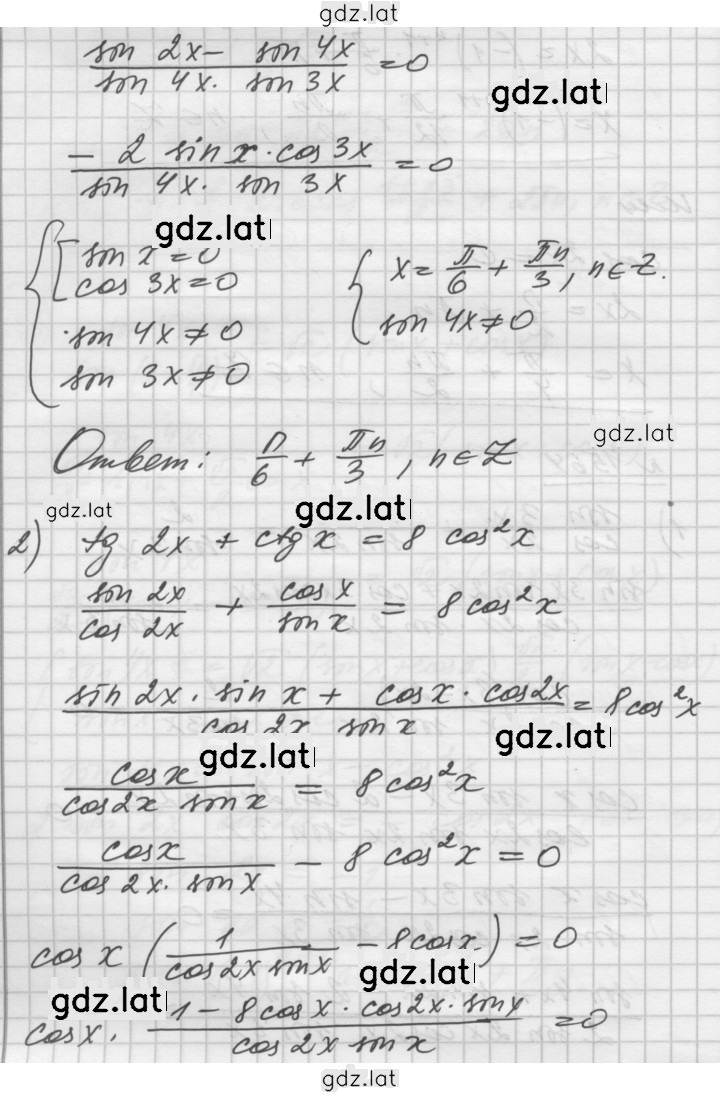 gdz.lat
sin 2x - sin 4x / sin 4x · sin 3x = 0
gdz.lat
- 2 sin x · cos 3x / sin 4x · sin 3x = 0
gdz.lat
{ [ sin x = 0
cos 3x = 0
sin 4x ≠ 0
sin 3x ≠ 0
{ x = π/6 + πn/3, n ∈ Z.
sin 4x ≠ 0
gdz.lat
Ответ: π/6 + πn/3, n ∈ Z
gdz.lat
gdz.lat
2) tg 2x + ctg x = 8 cos²x
sin 2x / cos 2x + cos x / sin x = 8 cos²x
sin 2x · sin x + cos x · cos 2x / cos 2x sin x = 8 cos²x
gdz.lat
gdz.lat
cos x / cos 2x sin x = 8 cos²x
cos x / cos 2x · sin x - 8 cos²x = 0
cos x ( 1 / cos 2x sin x - 8 cos x ) = 0
gdz.lat
gdz.lat
cos x · 1 - 8 cos x · cos 2x · sin x / cos 2x sin x = 0
gdz.lat